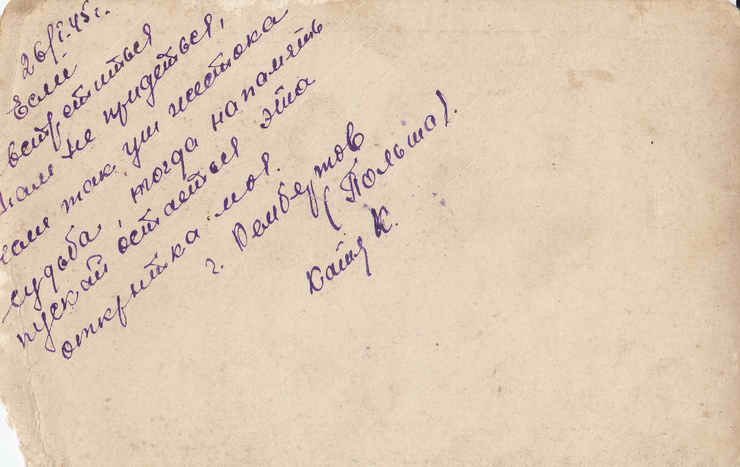 26/I-45 г.
Если
встретиться
нам не придеться,
нам так уш жестока
судьба, тогда на память
пускай остаеться эта
открытка моя.
г. Рембертов
(Польша).
Катя К.